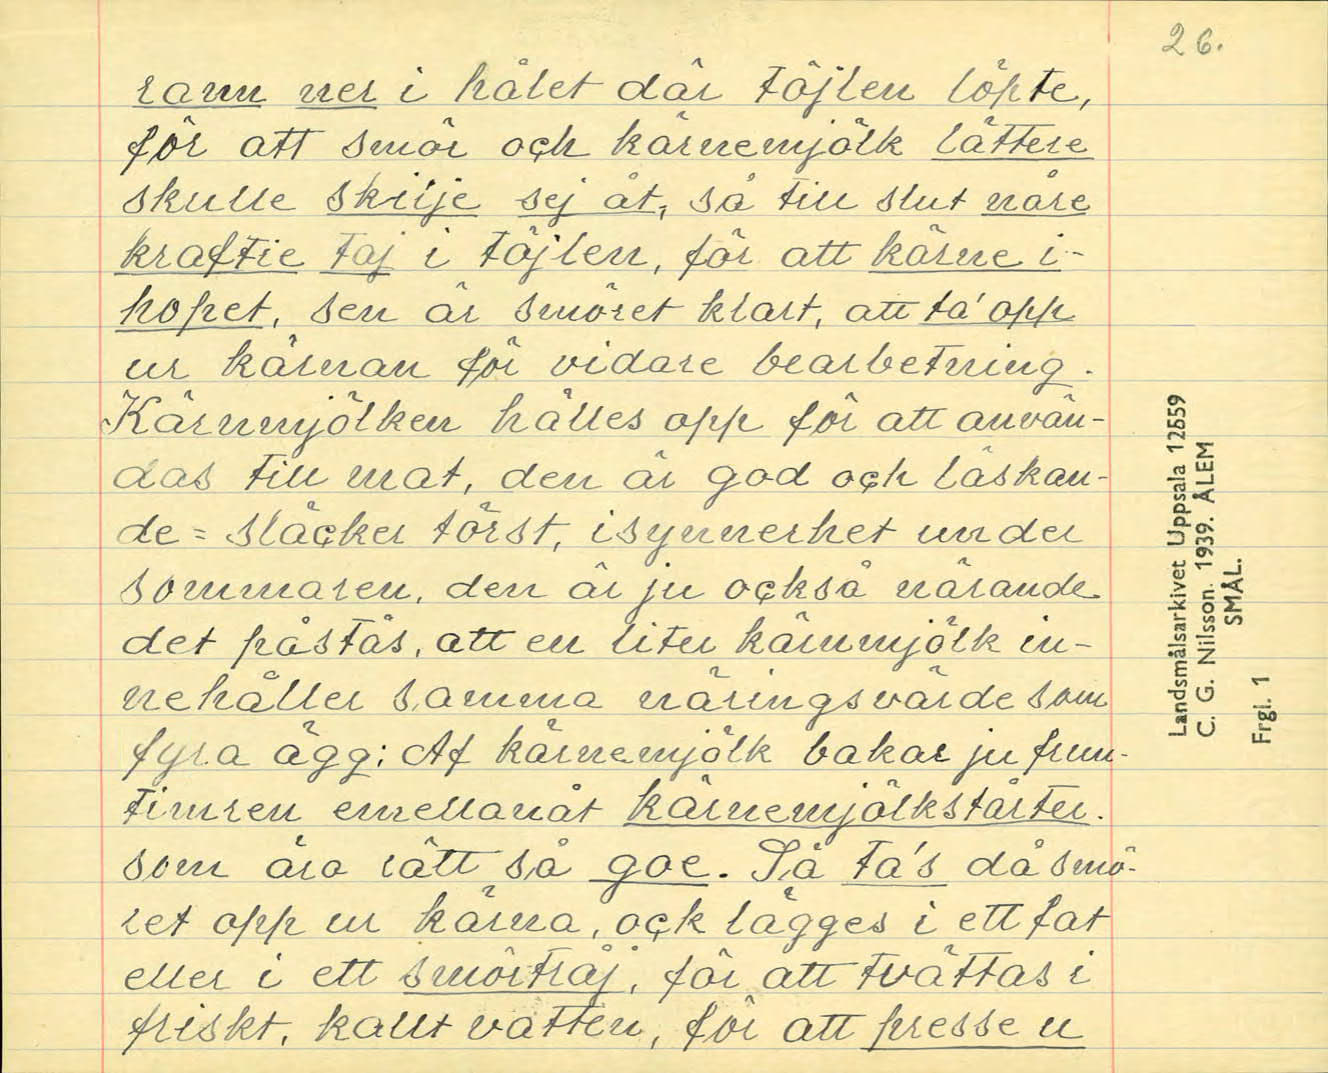 26.
rann ner i hålet där töjlen löpte,
för att smör och kärnemjölk lättere
skulle skilje sej åt, så till slut nåre
kraftie taj i töjlen, för att kärne i-
hopet, sen är smöret klart, att ta' opp
ur kärnan för vidare bearbetning.
Kärnmjölken hålles opp för att använ-
das till mat, den är god och läskan-
de = släcker törst, isynnerhet under
sommaren, den är ju också närande
det påstås, att en liter kärnmjölk in-
nehåller samma näringsvärde som
fyra ägg; Af kärnemjölk bakar ju frun-
timren emellanåt kärnemjölkstårter.
som äro rätt så goe. Så ta's då smö-
ret opp ur kärna, ock lägges i ett fat
eller i ett smörtråj, för att tvättas i
friskt, kallt vatten, för att presse u
Landsmålsarkivet Uppsala 12559
C. G. Nilsson. 1939. ÅLEM
SMÅL.
Frgl. 1